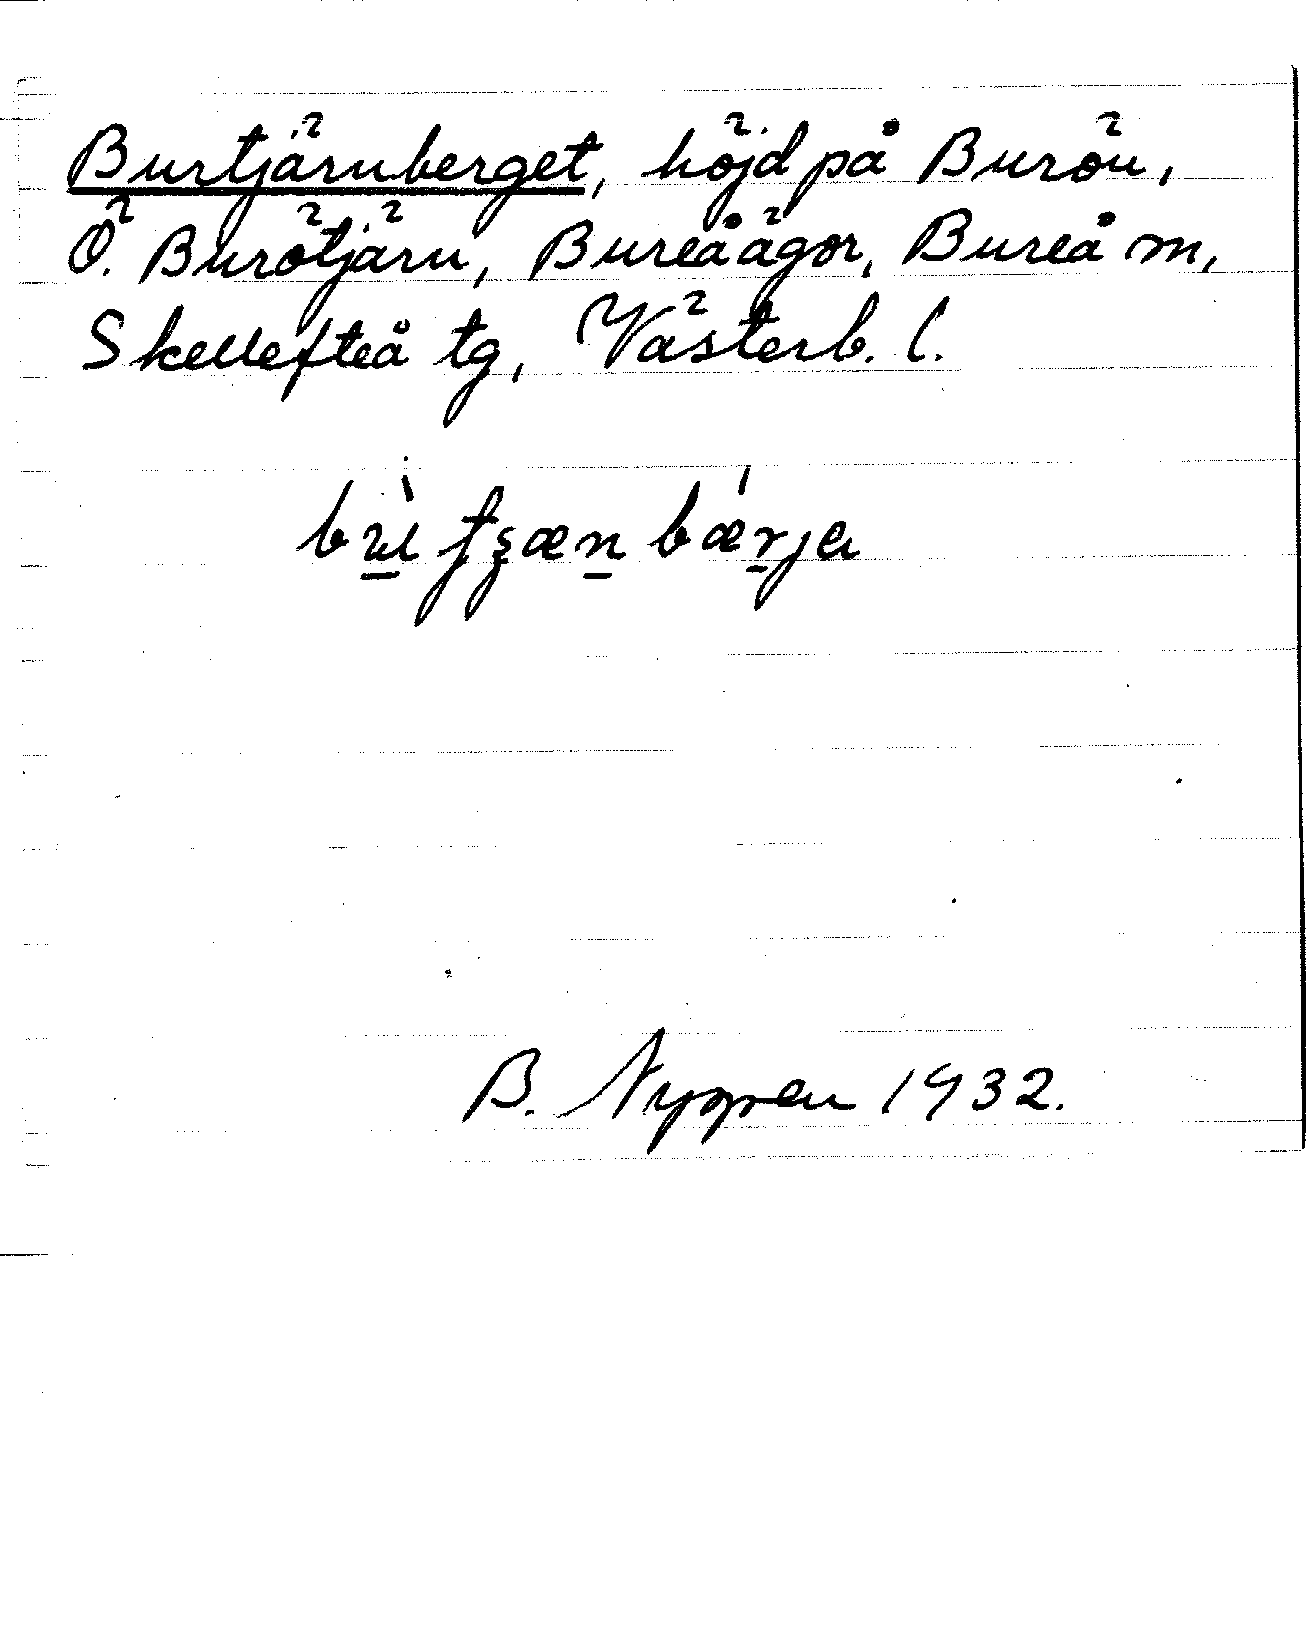 Burtjärnberget, höjd på Burön,
Ö. Burötjärn, Bureå ägor, Bureå m,
Skellefteå tg, Västerb. l.
B. Nygren 1932.